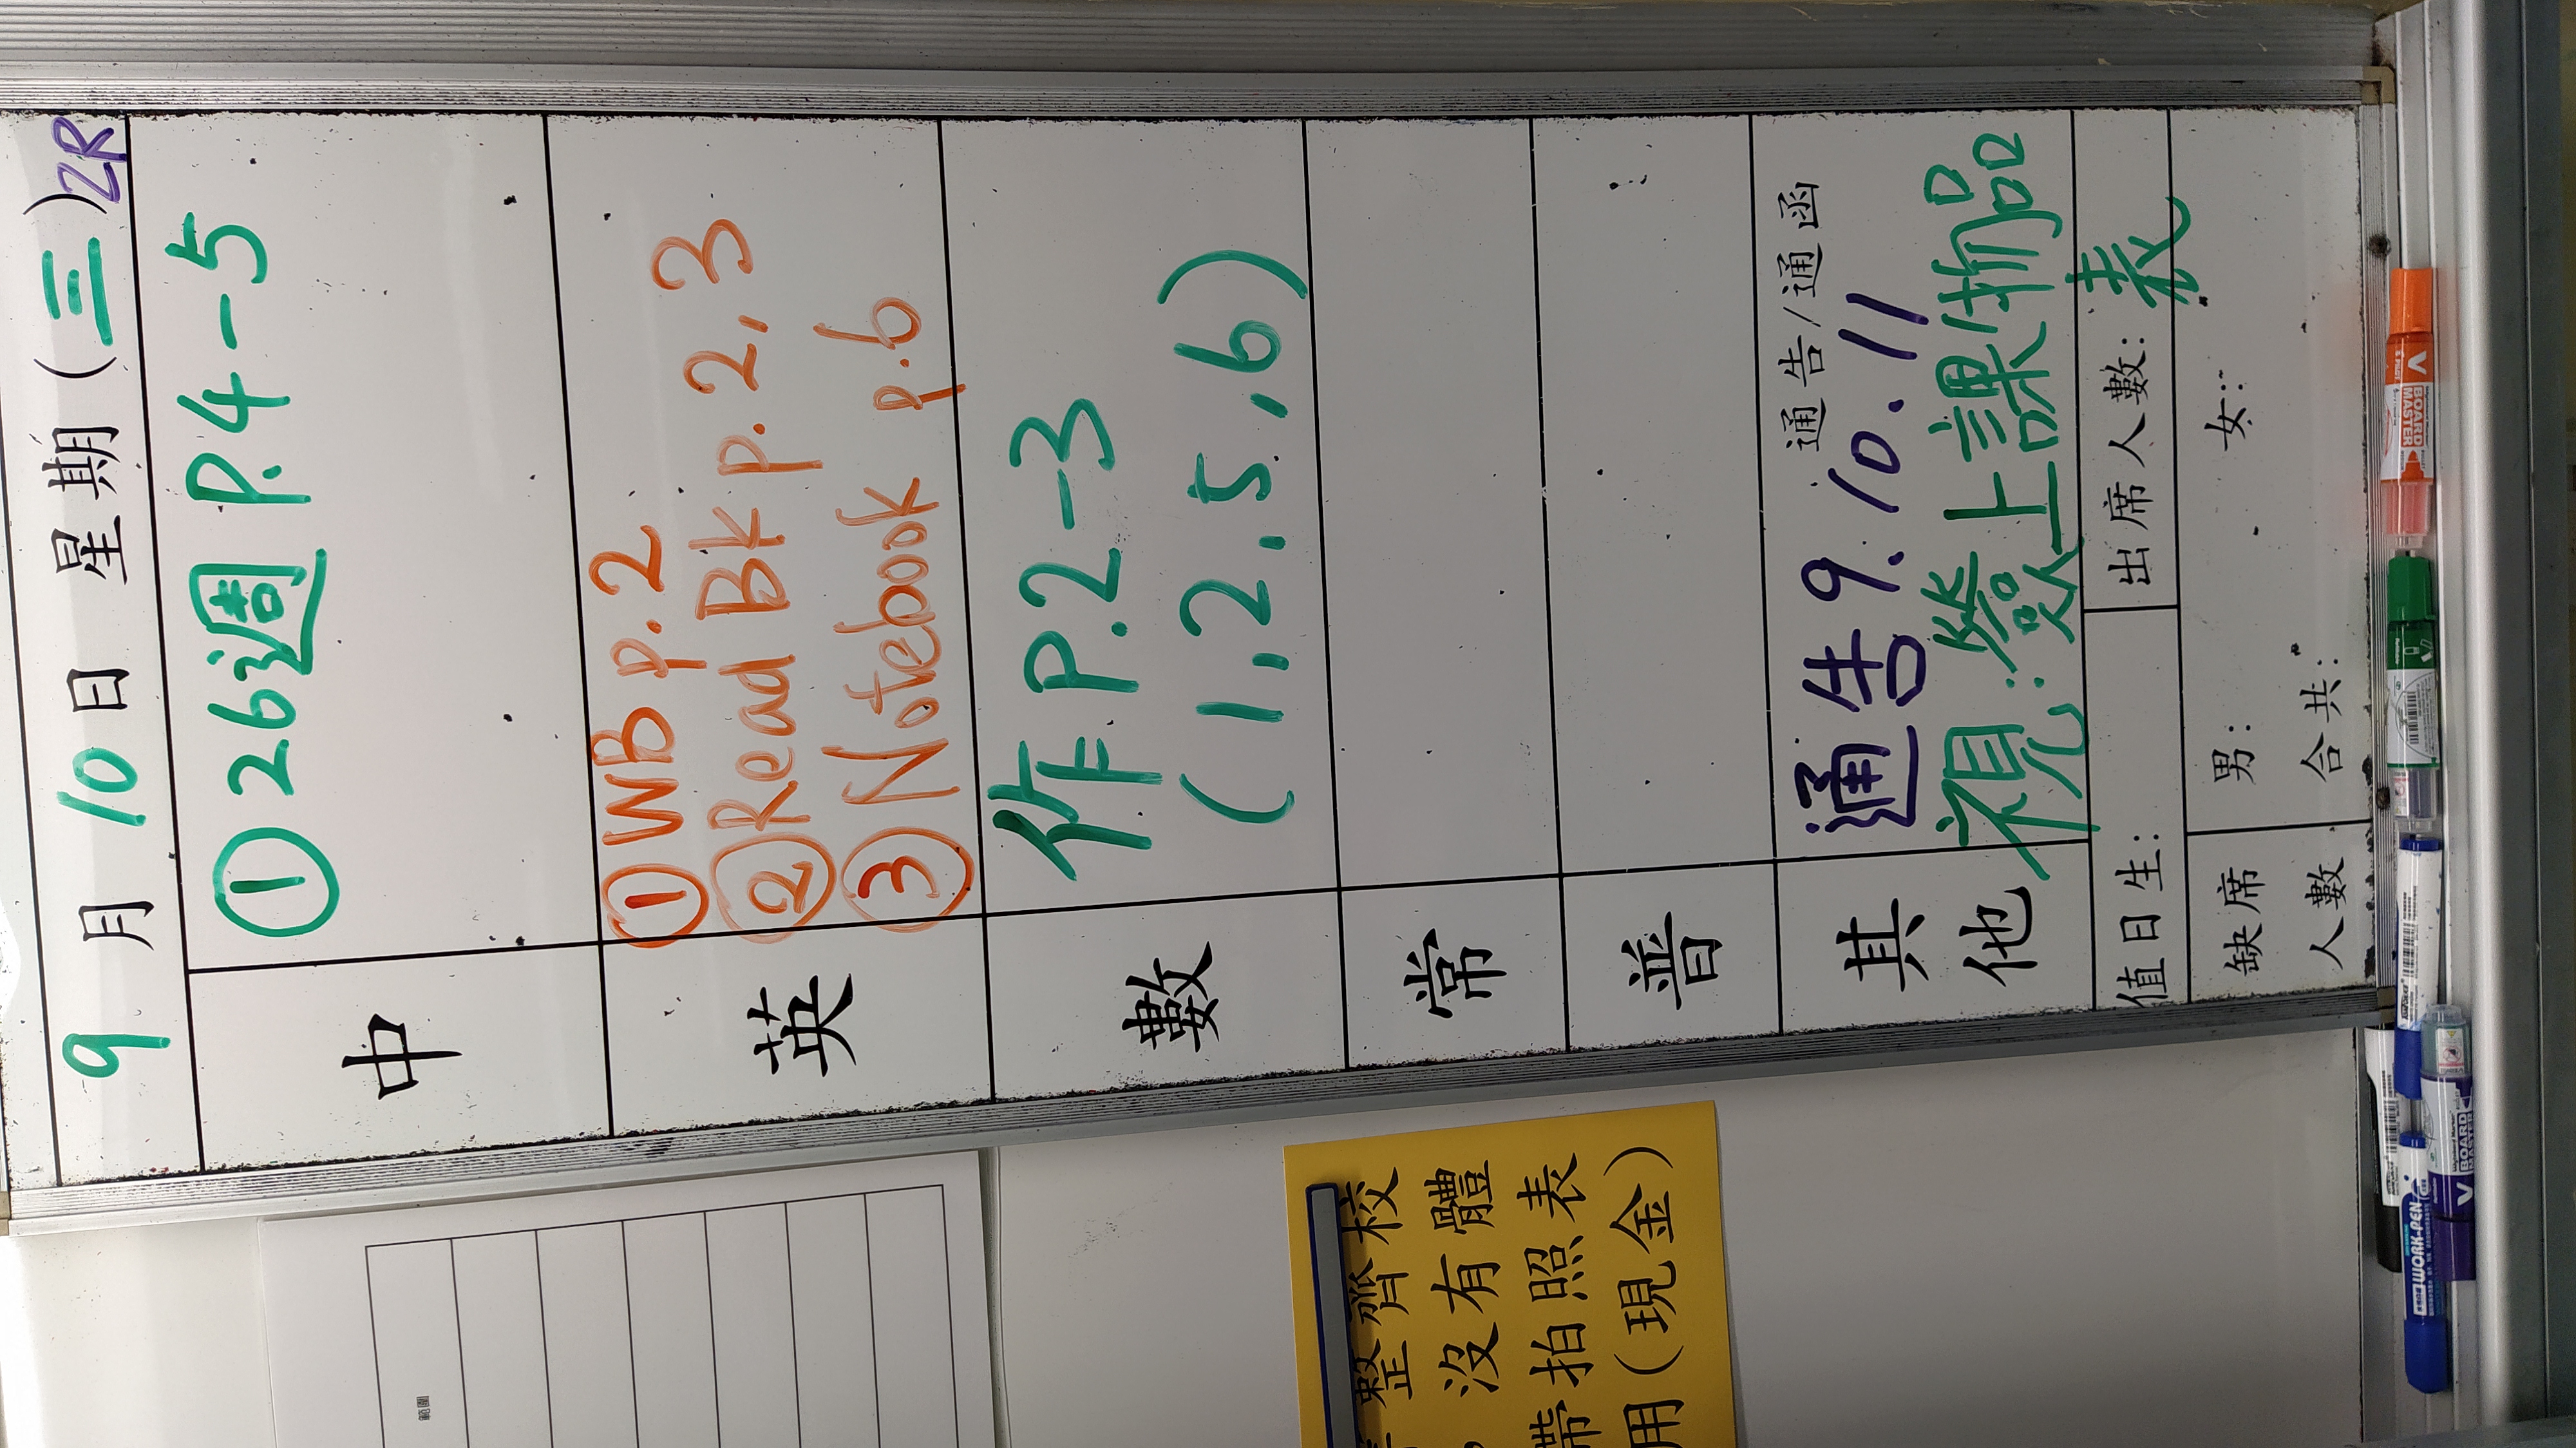 9月10日 星期(三) 2R
中
①26週 P.4-5
英
①WB p.2
②Read Bk p.2,3
③Notebook p.6
數
作 P.2-3
(1,2.5,6)
常
普
其他
通告/通函
通告9.10.11
視:簽上課物品
表
值日生:
出席人數:
缺席
人數
男:
女:
合共:
整齊校
沒有體
帶拍照表
用(現金)
範圍
BOARD
MASTER
WORK-PEN
V BOARD
MASTER